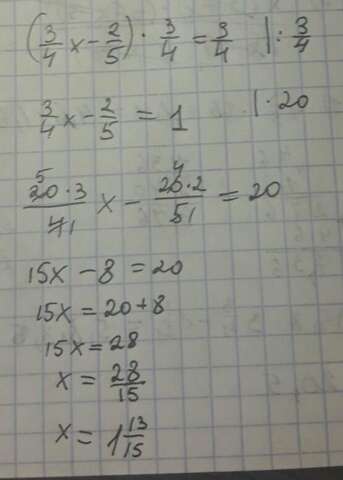 (3/4 x - 2/5) · 3/4 = 3/4 | : 3/4
3/4 x - 2/5 = 1 | · 20
5 4
20·3/41 x - 20·2/51 = 20
15x - 8 = 20
15x = 20 + 8
15x = 28
x = 28/15
x = 1 13/15